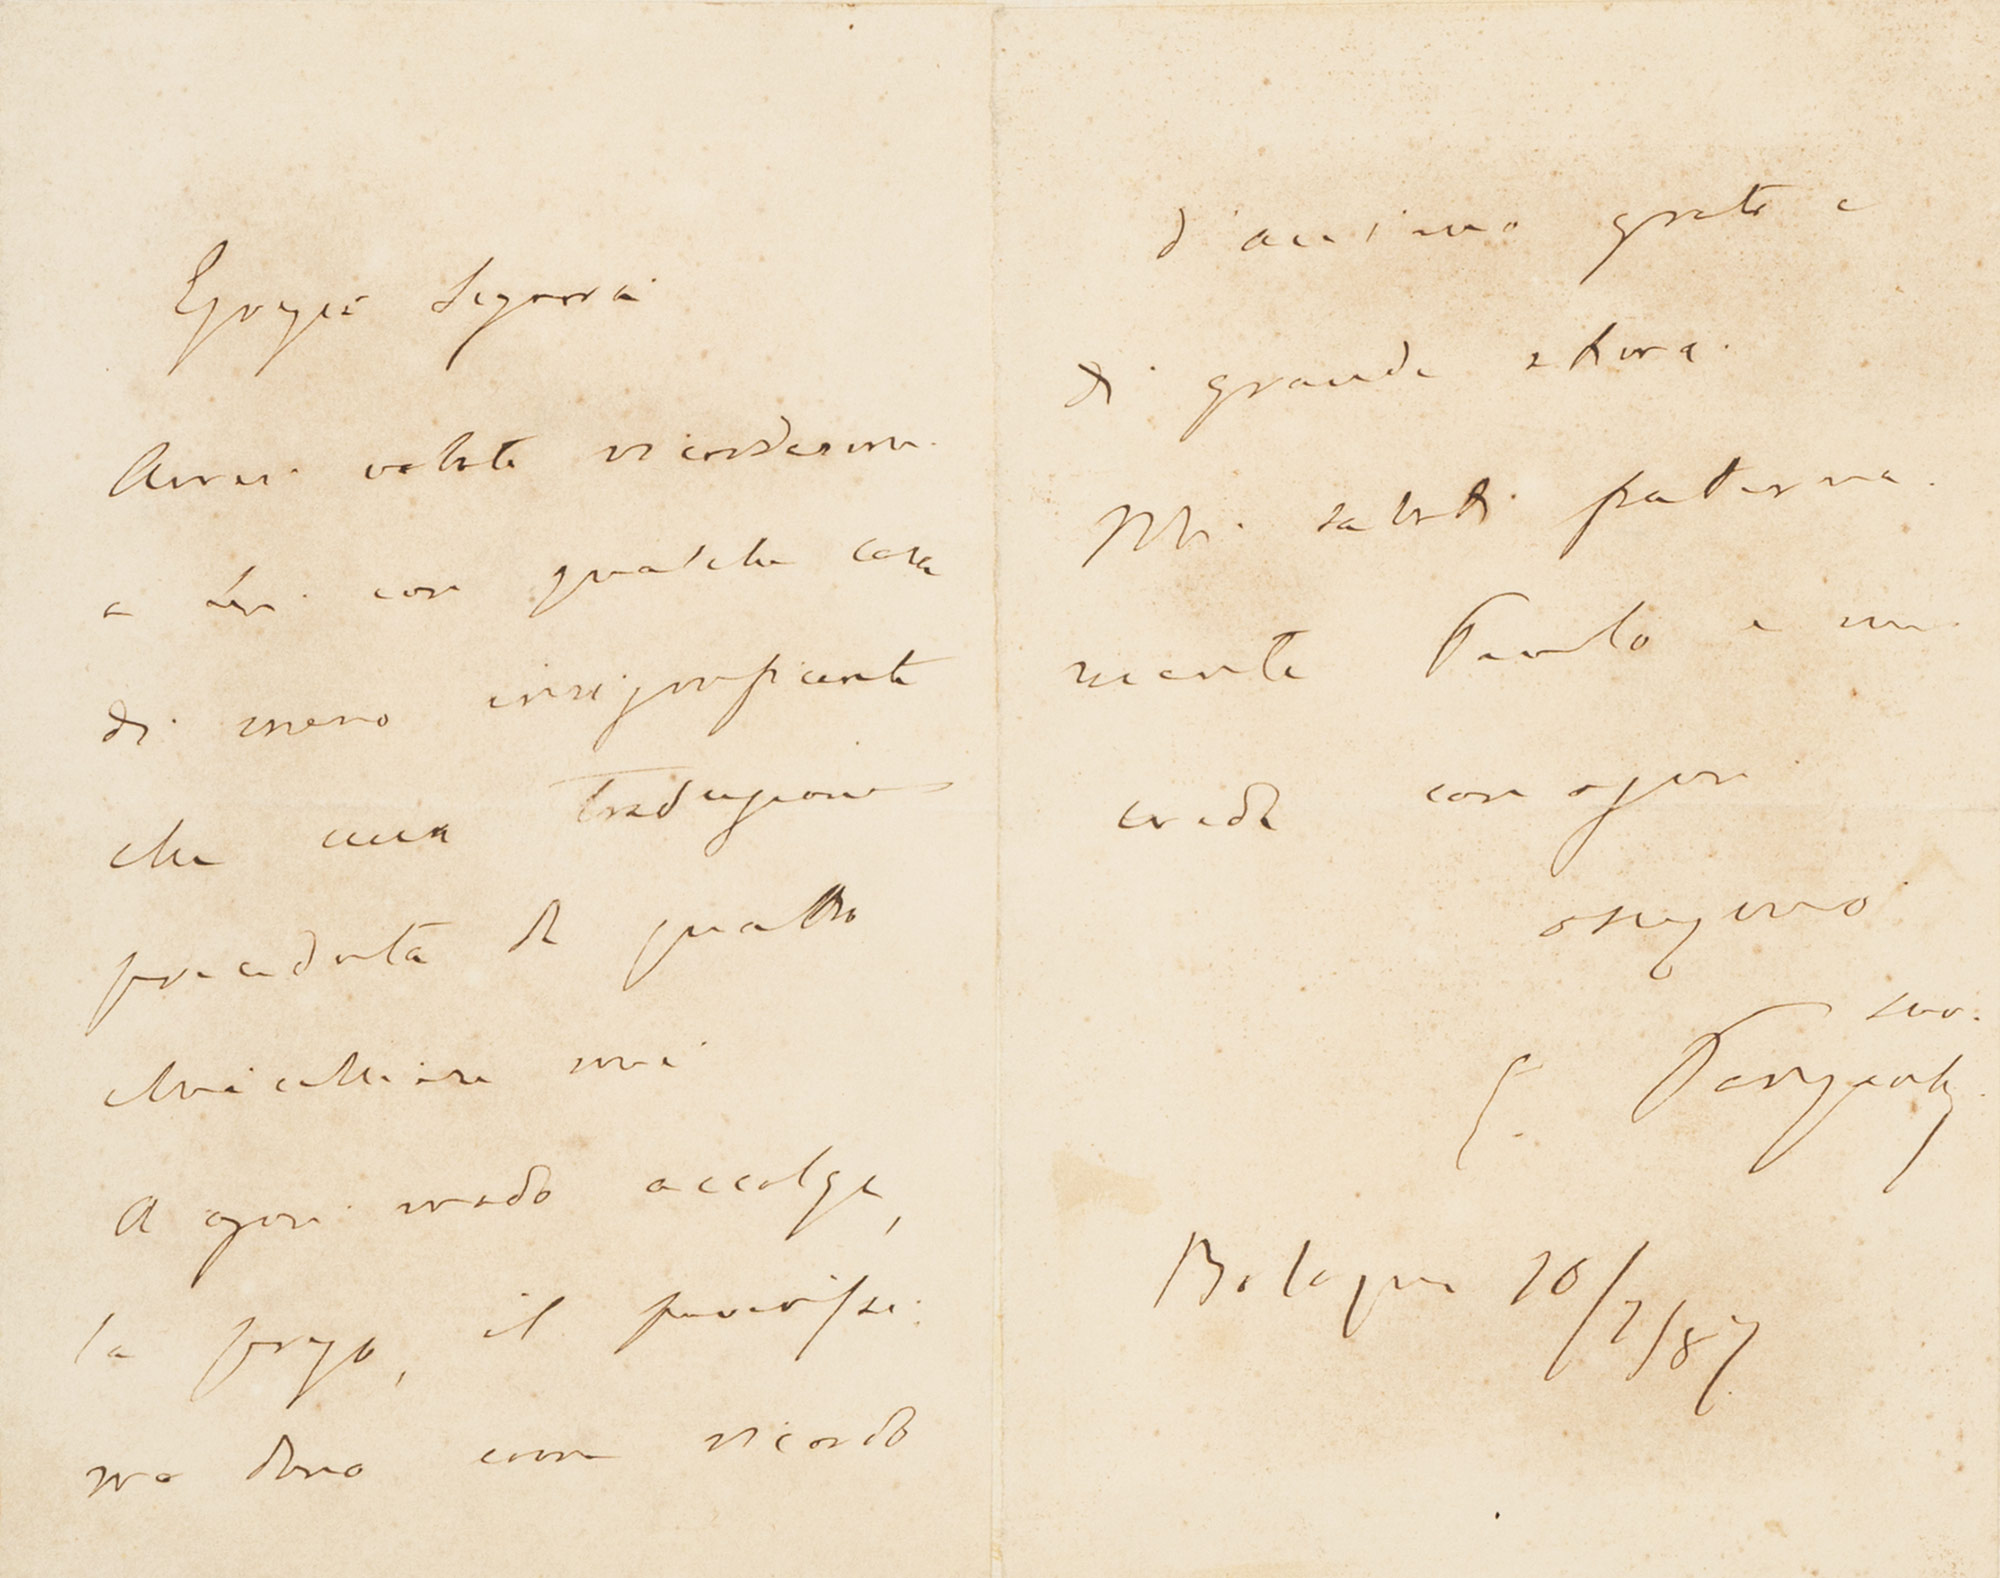 Egregia Signora
Avrei voluto ricordarmi
a Lei con qualche cosa
di meno insignificante
che una traduzione
preceduta da quattro
chiacchiere mie.
A ogni modo accolga,
la prego, il poverissi:
mo dono come ricordo
d'animo grato e
di grande stima.
Mi saluti fraterna
mente Paolo e mi
creda con ogni
ossequio
suo.
Bologna 20/7/87